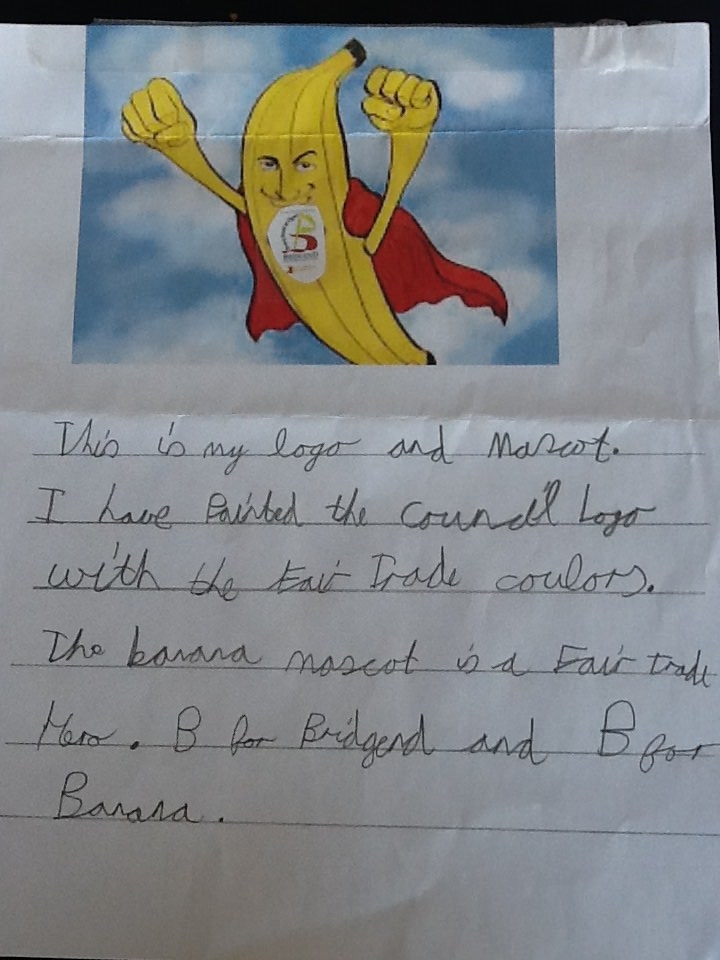 B
This is my logo and Mascot.
I have Painted the Council Logo
with the Fair Trade coulors.
The banana mascot is a Fair trade
Hero. B for Bridgend and B for
Banana.